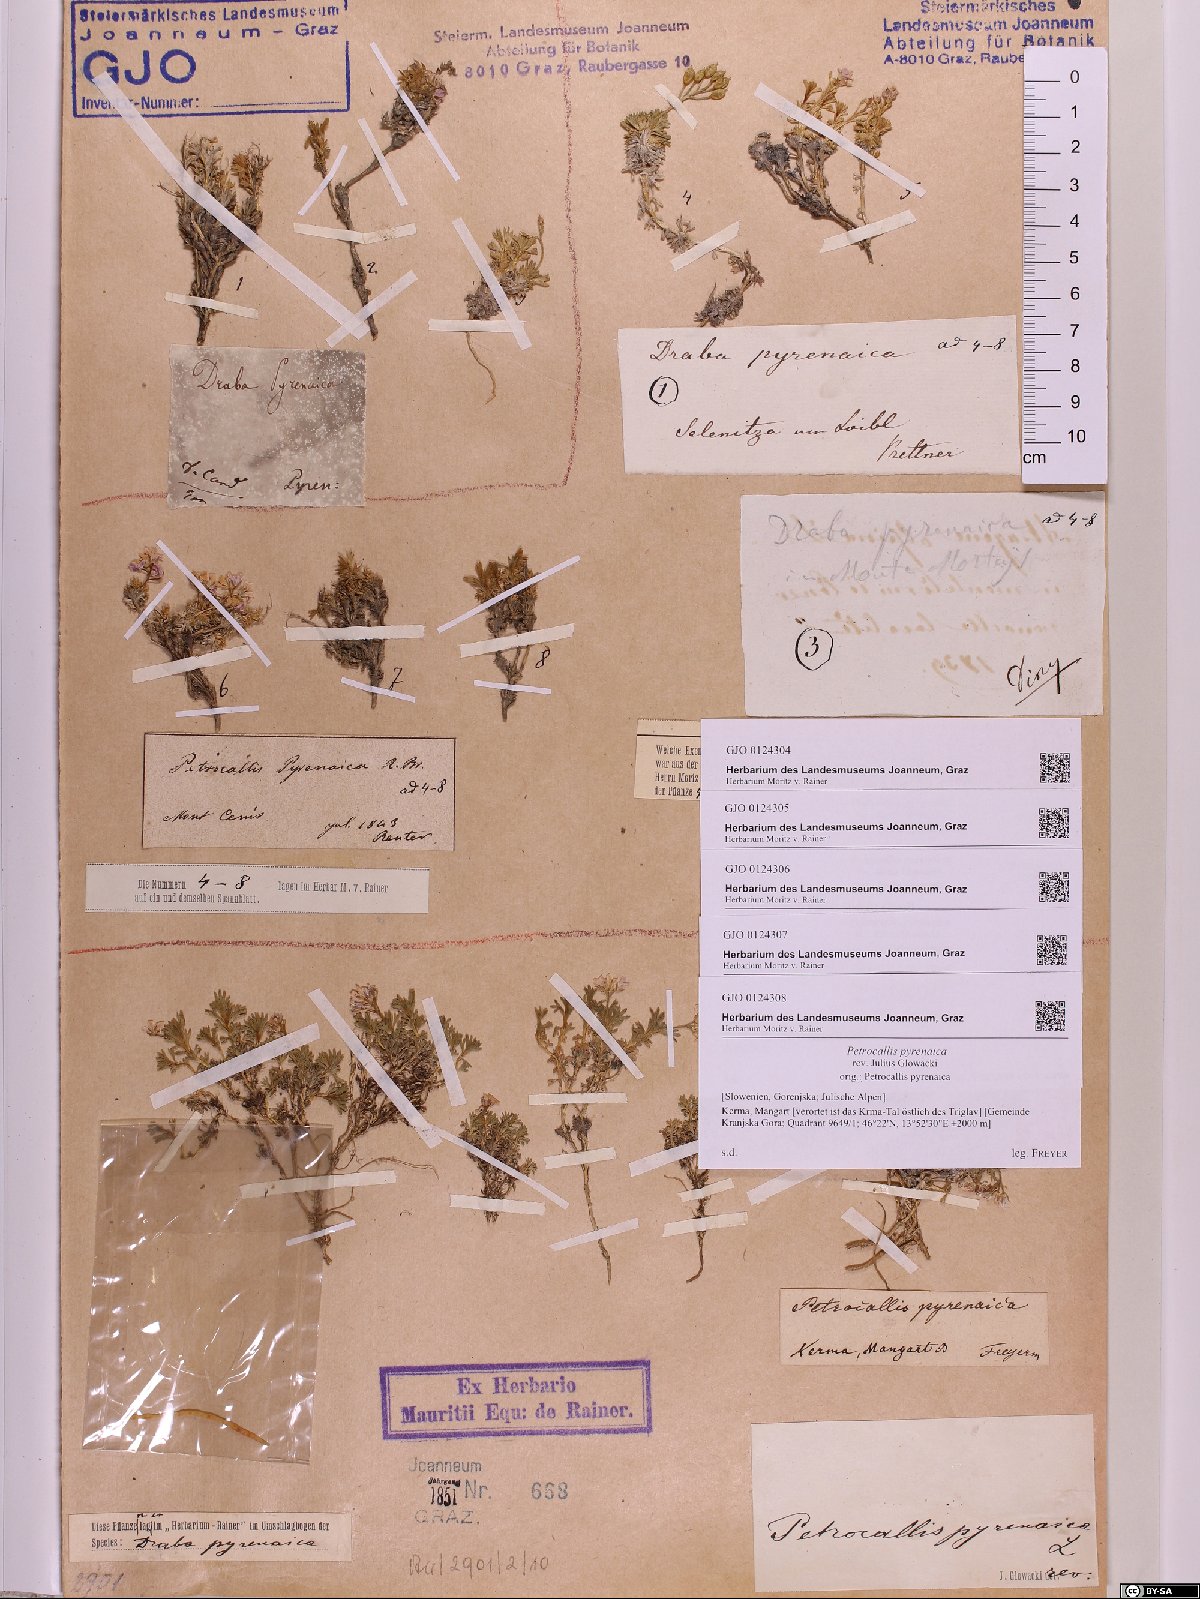 Steiermärkisches Landesmuseum
Joanneum - Graz
GJO
Inventar-Nummer:
Steierm. Landesmuseum Joanneum
Abteilung für Botanik
A 8010 Graz, Raubergasse 10
Steiermärkisches
Landesmuseum Joanneum
Abteilung für Botanik
A-8010 Graz, Raube
0
1
2
3
4
5
6
7
8
9
10
cm
1
2
4
5
Draba Pyrenaica
Pyren:
Draba pyrenaica ad 4-8
1
Selenitza am Loibl
Draba pyrenaica ad 4-8
3
6
7
8
Petrocallis Pyrenaica R. Br.
ad 4-8
Mont Cenis
jul. 1843
Reuter.
Die Nummern 4-8 lagen im Herbar M. v. Rainer
auf ein und demselben Spannblatt.
Welche Exem
war aus der
Herrn Moriz
der Pflanze
GJO 0124304
Herbarium des Landesmuseums Joanneum, Graz
Herbarium Moritz v. Rainer
GJO 0124305
Herbarium des Landesmuseums Joanneum, Graz
Herbarium Moritz v. Rainer
GJO 0124306
Herbarium des Landesmuseums Joanneum, Graz
Herbarium Moritz v. Rainer
GJO 0124307
Herbarium des Landesmuseums Joanneum, Graz
Herbarium Moritz v. Rainer
GJO 0124308
Herbarium des Landesmuseums Joanneum, Graz
Herbarium Moritz v. Rainer
Petrocallis pyrenaica
rev. Julius Glowacki
orig.: Petrocallis pyrenaica
[Slowenien, Gorenjska, Julische Alpen]
Kerma, Mangart [verortet ist das Krma-Tal östlich des Triglav] [Gemeinde
Kranjska Gora; Quadrant 9649/1; 46°22'N, 13°52'30"E +2000 m]
s.d. leg. FREYER
Petrocallis pyrenaica
Kerma, Mangart
Ex Herbario
Mauritii Equ: de Rainer.
Joanneum
Jahrgang
1851 Nr. 668
GRAZ.
2901/2/10
Diese Pflanze lag im „Herbarium-Rainer" im Umschlagbogen der
Species: Draba pyrenaica
2901
Petrocallis pyrenaica
L
J. Glowacki rev:
BY-SA